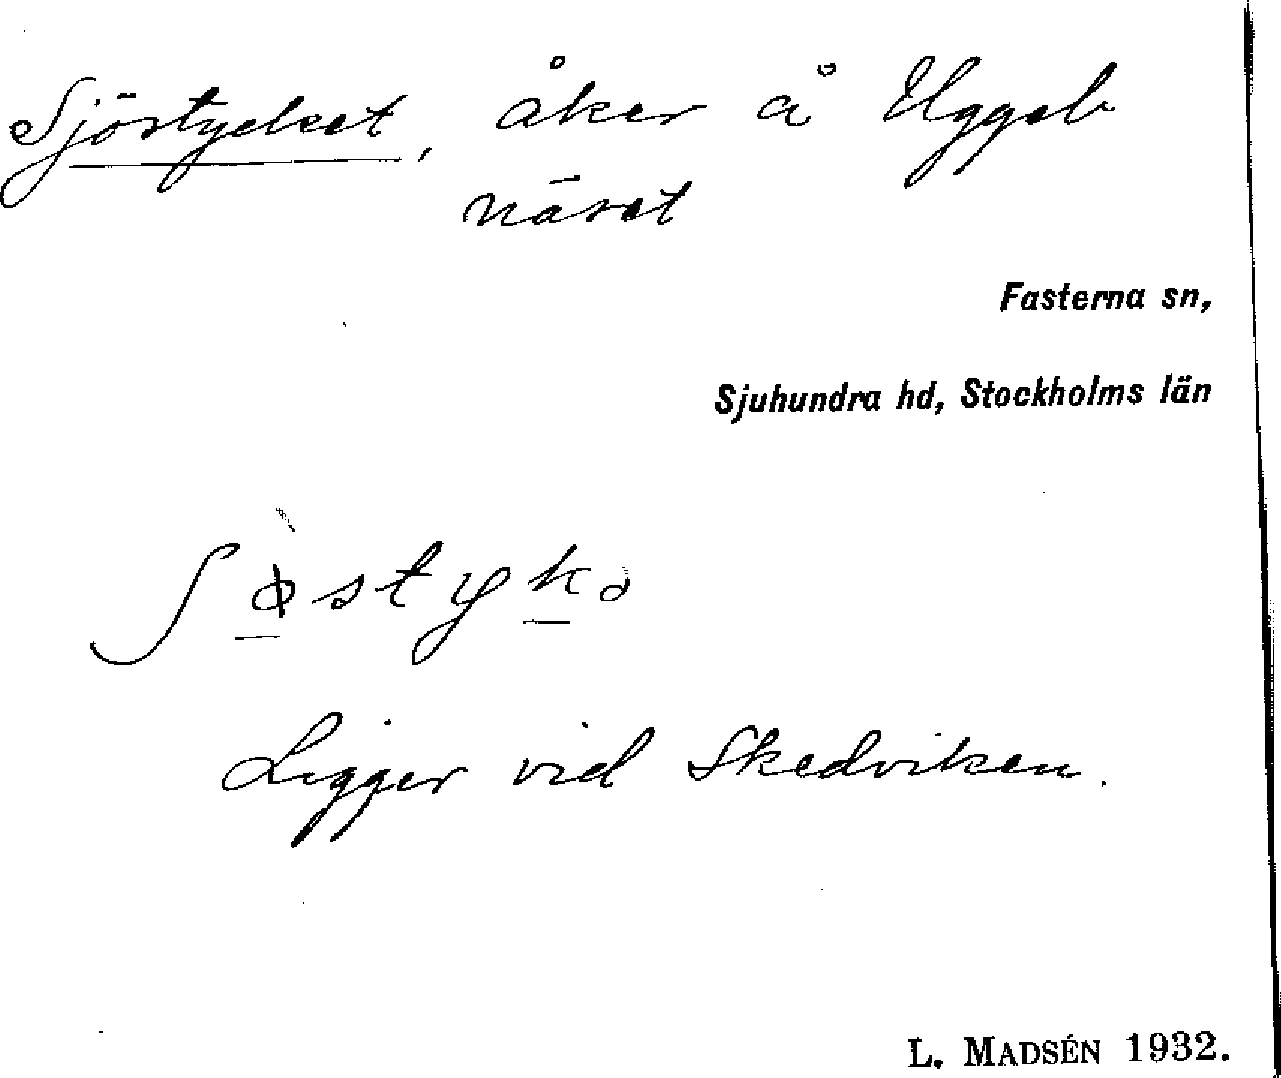 Sjöstycket, åker å Uggel-
näset
Fasterna sn,
Sjuhundra hd, Stockholms län
ʃø̀stykə
Ligger vid Skedviken.
L. MADSÉN 1932.